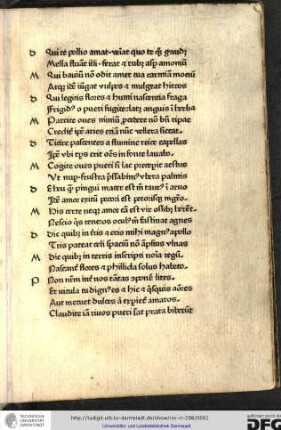 D Qui te pollio amat ueniat quo te q̨ gaudꝫ
Mella fluāt illi ferat & rubꝰ asp̄ amomū
M Qui bauiū nō odit amet tua carmīa moeui
Atqꝫ idē iūgat uulpes & mulgeat hircos
D Qui legitis flores & humi nascentia fraga
Frigidꝰ o pueri fugite latꝫ anguis ī herba
M Parcite oues nimiū nō bn̄ ripae
Crediť ipē aries etiā nūc uellera siccat
D Titire pascentes a flumine reice capellas
Ipē ubi tp̄s erit oēs in fonte lauabo
M Cogite oues pueri si lac praeripit aestus
Ut nup frustra ubera palmis
D Eheu q̄ pingui macer est m̄ taurꝰ ī aruo
Idē amor exitiū pecori est pecorisqꝫ mg̃ro
M His certe neqꝫ amor cā est uix ossibꝫ herēt
Nescio qs teneros oculꝰ m̄ fascinat agnos
D Dic quibꝫ in tris & eris mihi magnꝰ apollo
Tris pateat celi spaciū nō āplius ulnas
M Dic quibꝫ in terris inscripti noīa regū
Nascant̃ flores & phillida solus habeto
P Non nr̄m int̃ nos tātas cōponē lites
Et uitula tu dignꝰ & hic & q̄squis aōres
Aut metuet dulces aut expiet̃ amaros
Claudite iā riuos pueri sat prata biberūt
TECHNISCHE UNIVERSITÄT DARMSTADT
http://tudigit.ulb.tu-darmstadt.de/show/inc-ii-298/0001
Universitäts- und Landesbibliothek Darmstadt
gefördert durch die
DFG